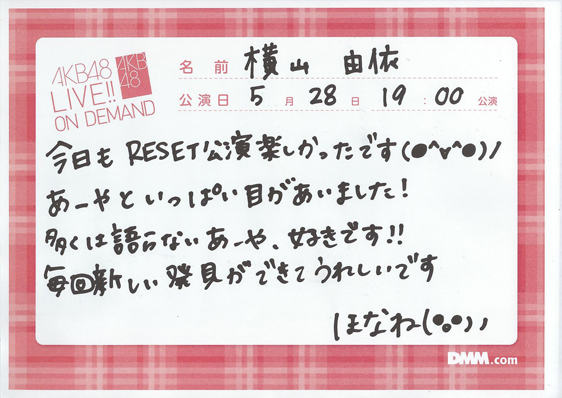 AKB48
LIVE!!
ON DEMAND
AKB
48
名前 横山 由依
公演日 5月28日 19:00公演
今日も RESET公演楽しかったです(●^v^●)ノ
あーやといっぱい目があいました!
多くは語らないあーや、好きです!!
毎回新しい発見ができてうれしいです
ほなね(●。●)ノノ
DMM.com